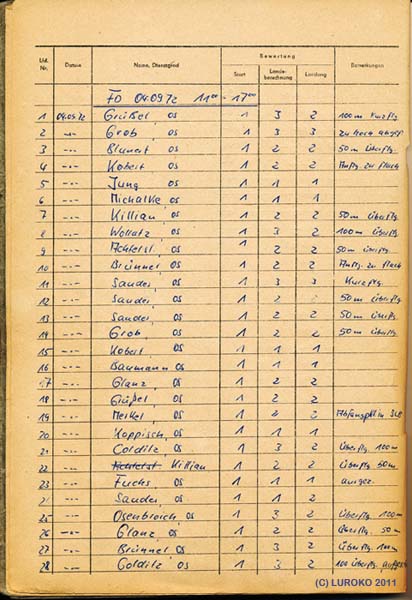 Bewertung
Lfd. Nr. Datum Name, Dienstgrad Start Lande- berechnung Landung Bemerkungen
FO 04.09.72 11⁰⁰ - 17⁰⁰
1 04.09.72 Grüßel, OS 1 3 2 100m Kurzflg.
2 -"- Grob, OS 1 3 3 zu hoch abgef.
3 -"- Blunert OS 1 2 2 50m überflg.
4 -"- Kobert OS 1 2 2 Anflg. zu flach
5 -"- Jung OS 1 1 1
6 -"- Michalke, OS 1 1 1
7 -"- Killian, OS 1 2 2 50m überflg.
8 -"- Wollatz, OS 1 3 2 100m überflg.
9 -"- OS 1 2 2 50m überflg.
10 -"- Brünnel, OS 1 2 2 Anflg. zu flach
11 -"- Sander, OS 1 3 3 Kurzflg.
12 -"- Sander, OS 1 2 50m überflg.
13 -"- Sander, OS 1 2 2 50m überflg.
14 -"- Grob, OS 1 2 2 50m überflg.
15 -"- Kobert, OS 1 1 1
16 -"- Baumann OS 1 1 1
17 -"- Glanz, OS 1 2 2
18 -"- Grüßel, OS 1 2 2
19 -"- Meikel, OS 1 2
20 -"- Koppisch, OS 1 1 1
21 -"- Colditz, OS 1 3 2 überflg. 100m
22 -"- Killian 1 2 2 überflg. 50m
23 -"- Fuchs, OS 1 1 1 ausgez.
2 -"- Sander, OS 1 1 2
25 -"- Osenbroich, OS 1 3 2 überflg. 100m
26 -"- Glanz, OS 1 2 2 überflg. 50m
27 -"- Brünnel OS 1 3 2 überflg. 100m
28 -"- Colditz, OS 1 3 2 100 überflg.
(C) LUROKO 2011